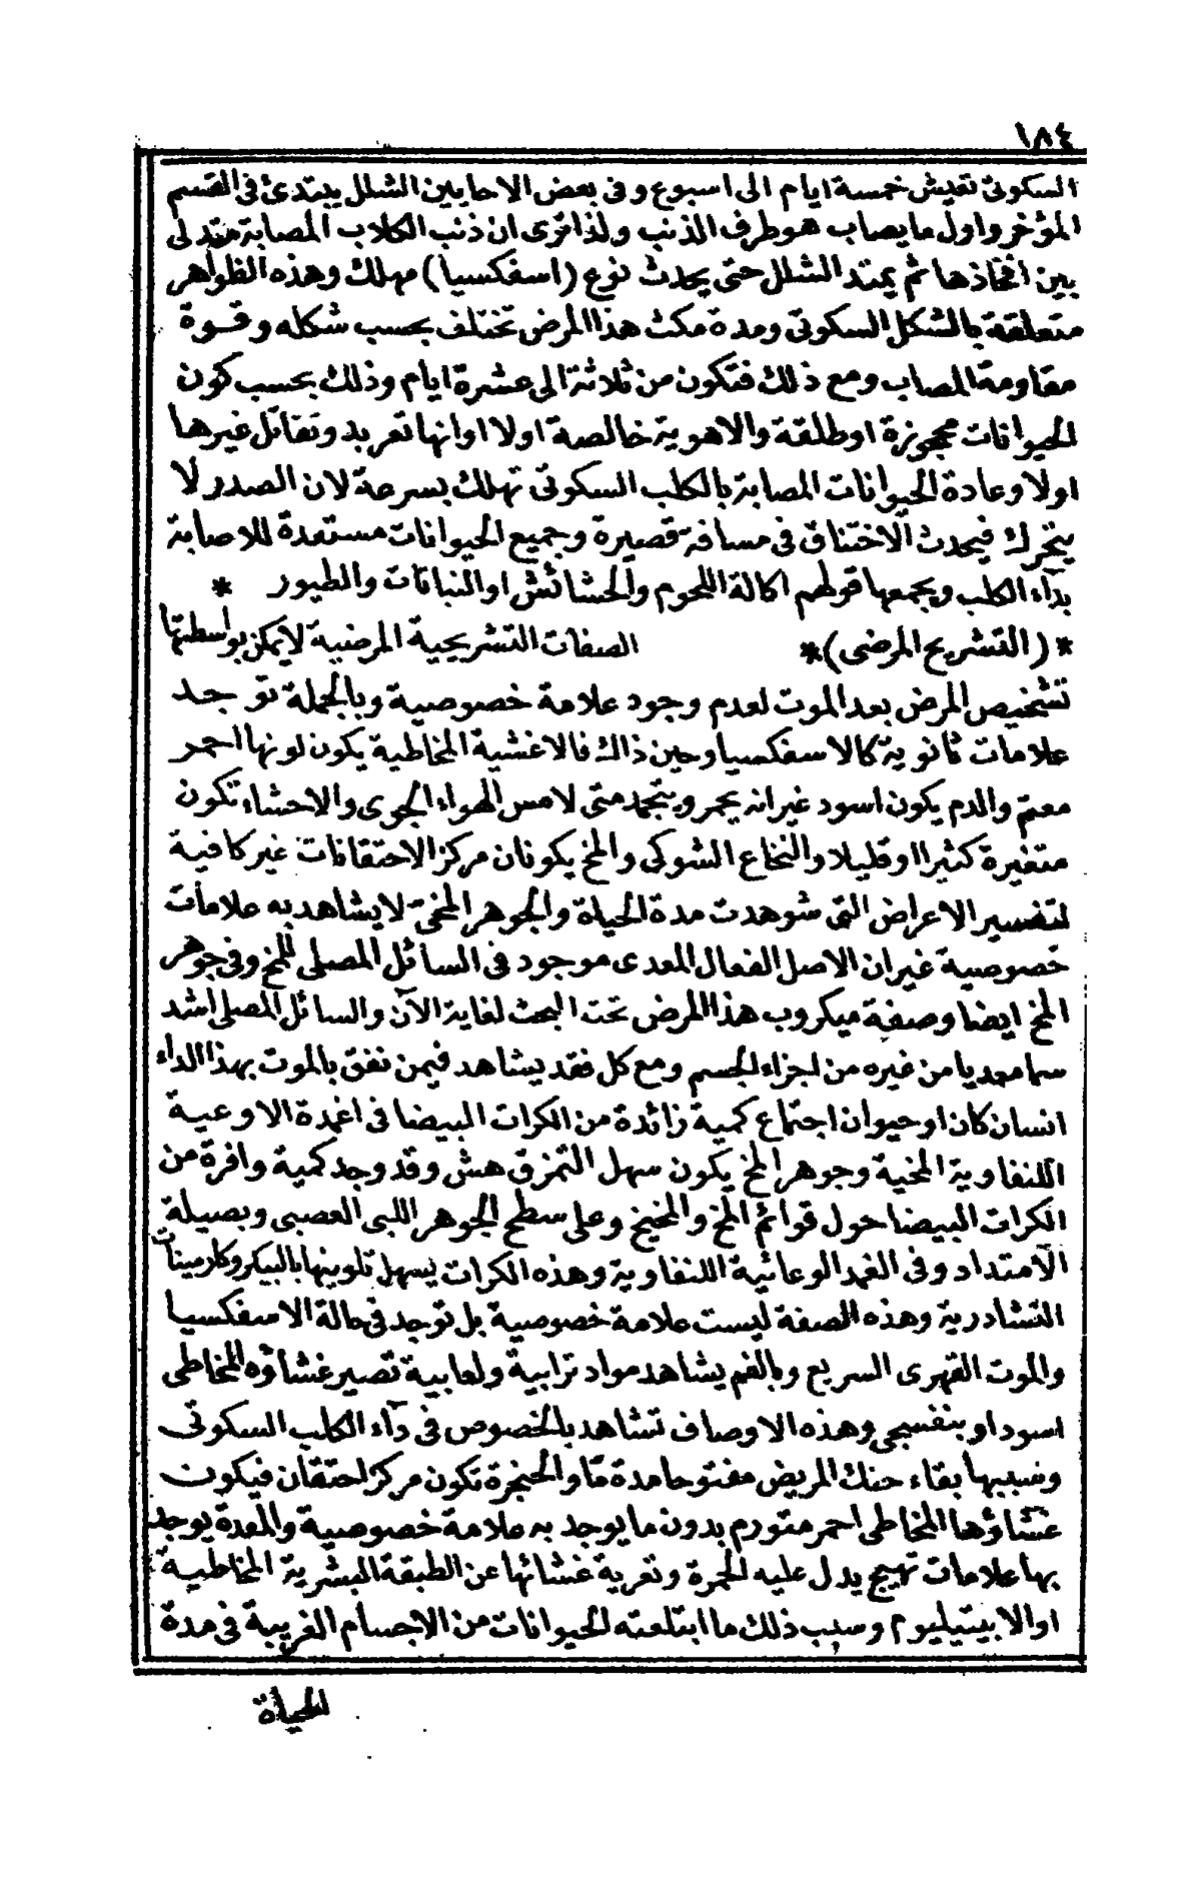 ١٨٤
السكوتى تعيش خمسة ايام الى اسبوع وفى بعض الاحايين الشلل يبتدئ فى القسم
المؤخر واول ما يصاب هو طرف الذنب ولذا ترى ان ذنب الكلاب المصابة متدلى
بين افخاذها ثم يمتد الشلل حتى يحدث نوع (اسفكسيا) مهلك وهذه الظواهر
متعلقة بالشكل السكوتى ومدة مكث هذا المرض تختلف بحسب شكله وقوة
مقاومة المصاب ومع ذلك فتكون من ثلاثة الى عشرة ايام وذلك بحسب كون
الحيوانات محجوزة او طلقة والاهوية خالصة اولا او انها تعربد وتقاتل غيرها
اولا وعادة الحيوانات المصابة بالكلب السكوتى تهلك بسرعة لان الصدر لا
يتحرك فيحدث الاختناق فى مسافة قصيرة وجميع الحيوانات مستعدة للاصابة
بدآء الكلب ويجمعها قولهم اكالة اللحوم والحشائش او النباتات والطيور *
* (التشريح المرضى) * الصفات التشريحية المرضية لا يمكن بواسطتها
تشخيص المرض بعد الموت لعدم وجود علامة خصوصية وبالجملة توجد
علامات ثانوية كالاسفكسيا وحين ذاك فالاغشية المخاطية يكون لونها احمر
معتم والدم يكون اسود غير انه يحمر ويتجمد متى لامس الهواء الجوى والاحشاء تكون
متغيرة كثيرا او قليلا والنخاع الشوكى والمخ يكونان مركز الاحتقانات غير كافية
لتفسير الاعراض التى شوهدت مدة الحياة والجوهر المخى لا يشاهد به علامات
خصوصية غير ان الاصل الفعال المعدى موجود فى السائل المصلى للمخ وفى جوهر
المخ ايضا وصفة ميكروب هذا المرض تحت البحث لغاية الآن والسائل المصلى اشد
سما معديا من غيره من اجزاء الجسم ومع كل فقد يشاهد فيمن نفق بالموت بهذا الداء
انسان كان او حيوان اجتماع كمية زائدة من الكرات البيضا فى اغمدة الاوعية
اللنفاوية المخية وجوهر المخ يكون سهل التمزق هش وقد وجد كمية وافرة من
الكرات البيضا حول قوائم المخ والمخيخ وعلى سطح الجوهر اللبى العصبى وبصيلة
الامتداد وفى الغمد الوعائية اللنفاوية وهذه الكرات يسهل تلوينها بالبيكروكارمينات
النشادرية وهذه الصفة ليست علامة خصوصية بل توجد فى حالة الاسفكسيا
والموت القهرى السريع وبالفم يشاهد مواد ترابية ولعابية تصير غشاؤه المخاطى
اسود او بنفسجى وهذه الاوصاف تشاهد بالخصوص فى دآء الكلب السكوتى
وسببها بقاء حنك المريض مفتوحا مدة ما والحنجرة تكون مركز احتقان فيكون
غشاؤها المخاطى احمر متورم بدون ما يوجد به علامة خصوصية والمعدة يوجد
بها علامات تهيج يدل عليه الحمرة وتعرية غشائها عن الطبقة البشرية المخاطية
او الابيتيليوم وسبب ذلك ما ابتلعته الحيوانات من الاجسام الغريبة فى مدة
الحياة